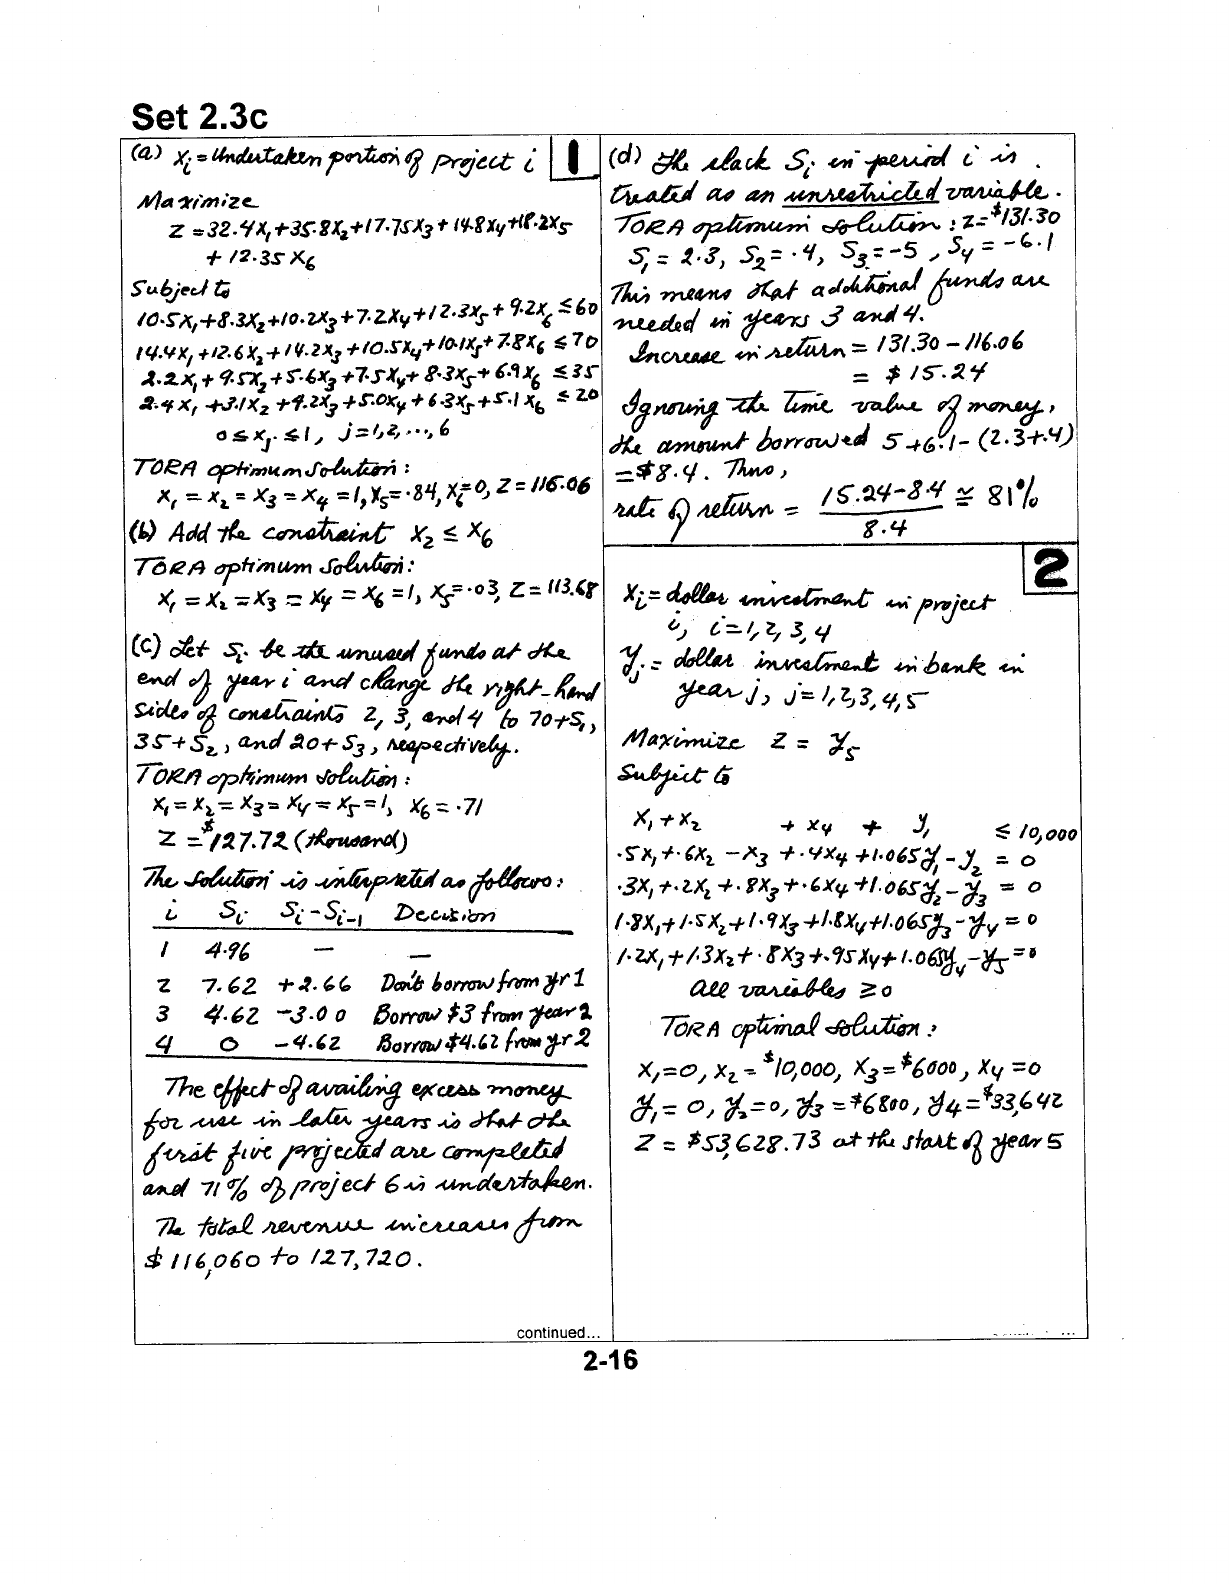 Set 2.3c
(a) Xi = Undertaken portion of project i
1
Maximize
Z = 32.4X1 + 35.8X2 + 17.75X3 + 14.8X4 + 18.2X5
+ 12.35 X6
Subject to
10.5X1 + 8.3X2 + 10.2X3 + 7.2X4 + 12.3X5 + 9.2X6 ≤ 60
14.4X1 + 12.6X2 + 14.2X3 + 10.5X4 + 10.1X5 + 7.8X6 ≤ 70
2.2X1 + 9.5X2 + 5.6X3 + 7.5X4 + 8.3X5 + 6.9X6 ≤ 35
2.4X1 + 3.1X2 + 4.2X3 + 5.0X4 + 6.3X5 + 5.1X6 ≤ 20
0 ≤ Xj ≤ 1, j = 1, 2, ..., 6
TORA optimum solution:
X1 = X2 = X3 = X4 = 1, X5 = .84, X6 = 0, Z = 116.06
(b) Add the constraint X2 ≤ X6
TORA optimum solution:
X1 = X2 = X3 = X4 = X6 = 1, X5 = .03, Z = 113.68
(c) Let Si be the unused funds at the
end of year i and change the right-hand
sides of constraints 2, 3, and 4 to 70+S1,
35+S2, and 20+S3, respectively.
TORA optimum solution:
X1 = X2 = X3 = X4 = X5 = 1, X6 = .71
Z = $127.72 (thousand)
The solution is interpreted as follows:
i Si Si - Si-1 Decision
1 4.96 — —
2 7.62 +2.66 Don't borrow from yr 1
3 4.62 -3.00 Borrow $3 from year 2
4 0 -4.62 Borrow $4.62 from yr 2
The effect of availing excess money
for use in later years is that the
first five projected are completed
and 71% of project 6 is undertaken.
The total revenue increases from
$116,060 to 127,720.
continued...
(d) The slack Si in period i is
treated as an unrestricted variable.
TORA optimum solution: Z = $131.30
S1 = 2.3, S2 = .4, S3 = -5, S4 = -6.1
This means that additional funds are
needed in years 3 and 4.
Increase in return = 131.30 - 116.06
= $15.24
Ignoring the time value of money,
the amount borrowed 5 + 6.1 - (2.3+.4)
= $8.4. Thus,
rate of return = 15.24 - 8.4 / 8.4 ≅ 81%
2
Xi = dollar investment in project
i, i = 1, 2, 3, 4
yj = dollar investment in bank in
year j, j = 1, 2, 3, 4, 5
Maximize Z = y5
Subject to
X1 + X2 + X4 + y1 ≤ 10,000
.5X1 + .6X2 - X3 + .4X4 + 1.065y1 - y2 = 0
.3X1 + .2X2 + .8X3 + .6X4 + 1.065y2 - y3 = 0
1.8X1 + 1.5X2 + 1.9X3 + 1.8X4 + 1.065y3 - y4 = 0
1.2X1 + 1.3X2 + .8X3 + .95X4 + 1.065y4 - y5 = 0
all variables ≥ 0
TORA optimal solution:
X1 = 0, X2 = $10,000, X3 = $6000, X4 = 0
y1 = 0, y2 = 0, y3 = $6800, y4 = $33,642
Z = $53,628.73 at the start of year 5
2-16